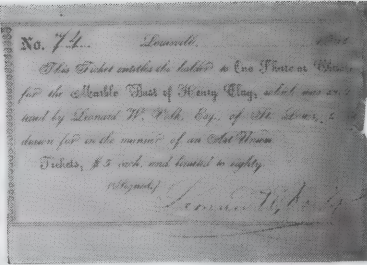 No. 74
This Ticket entitles the holder to One Share or Chance
for the Marble Bust of Henry Clay, which was
by Leonard W. Volk, Esq., of St. Louis,
drawn for in the manner of an Art Union
Tickets, $5 each, and limited to eighty
(Signed)
Leonard W. Volk